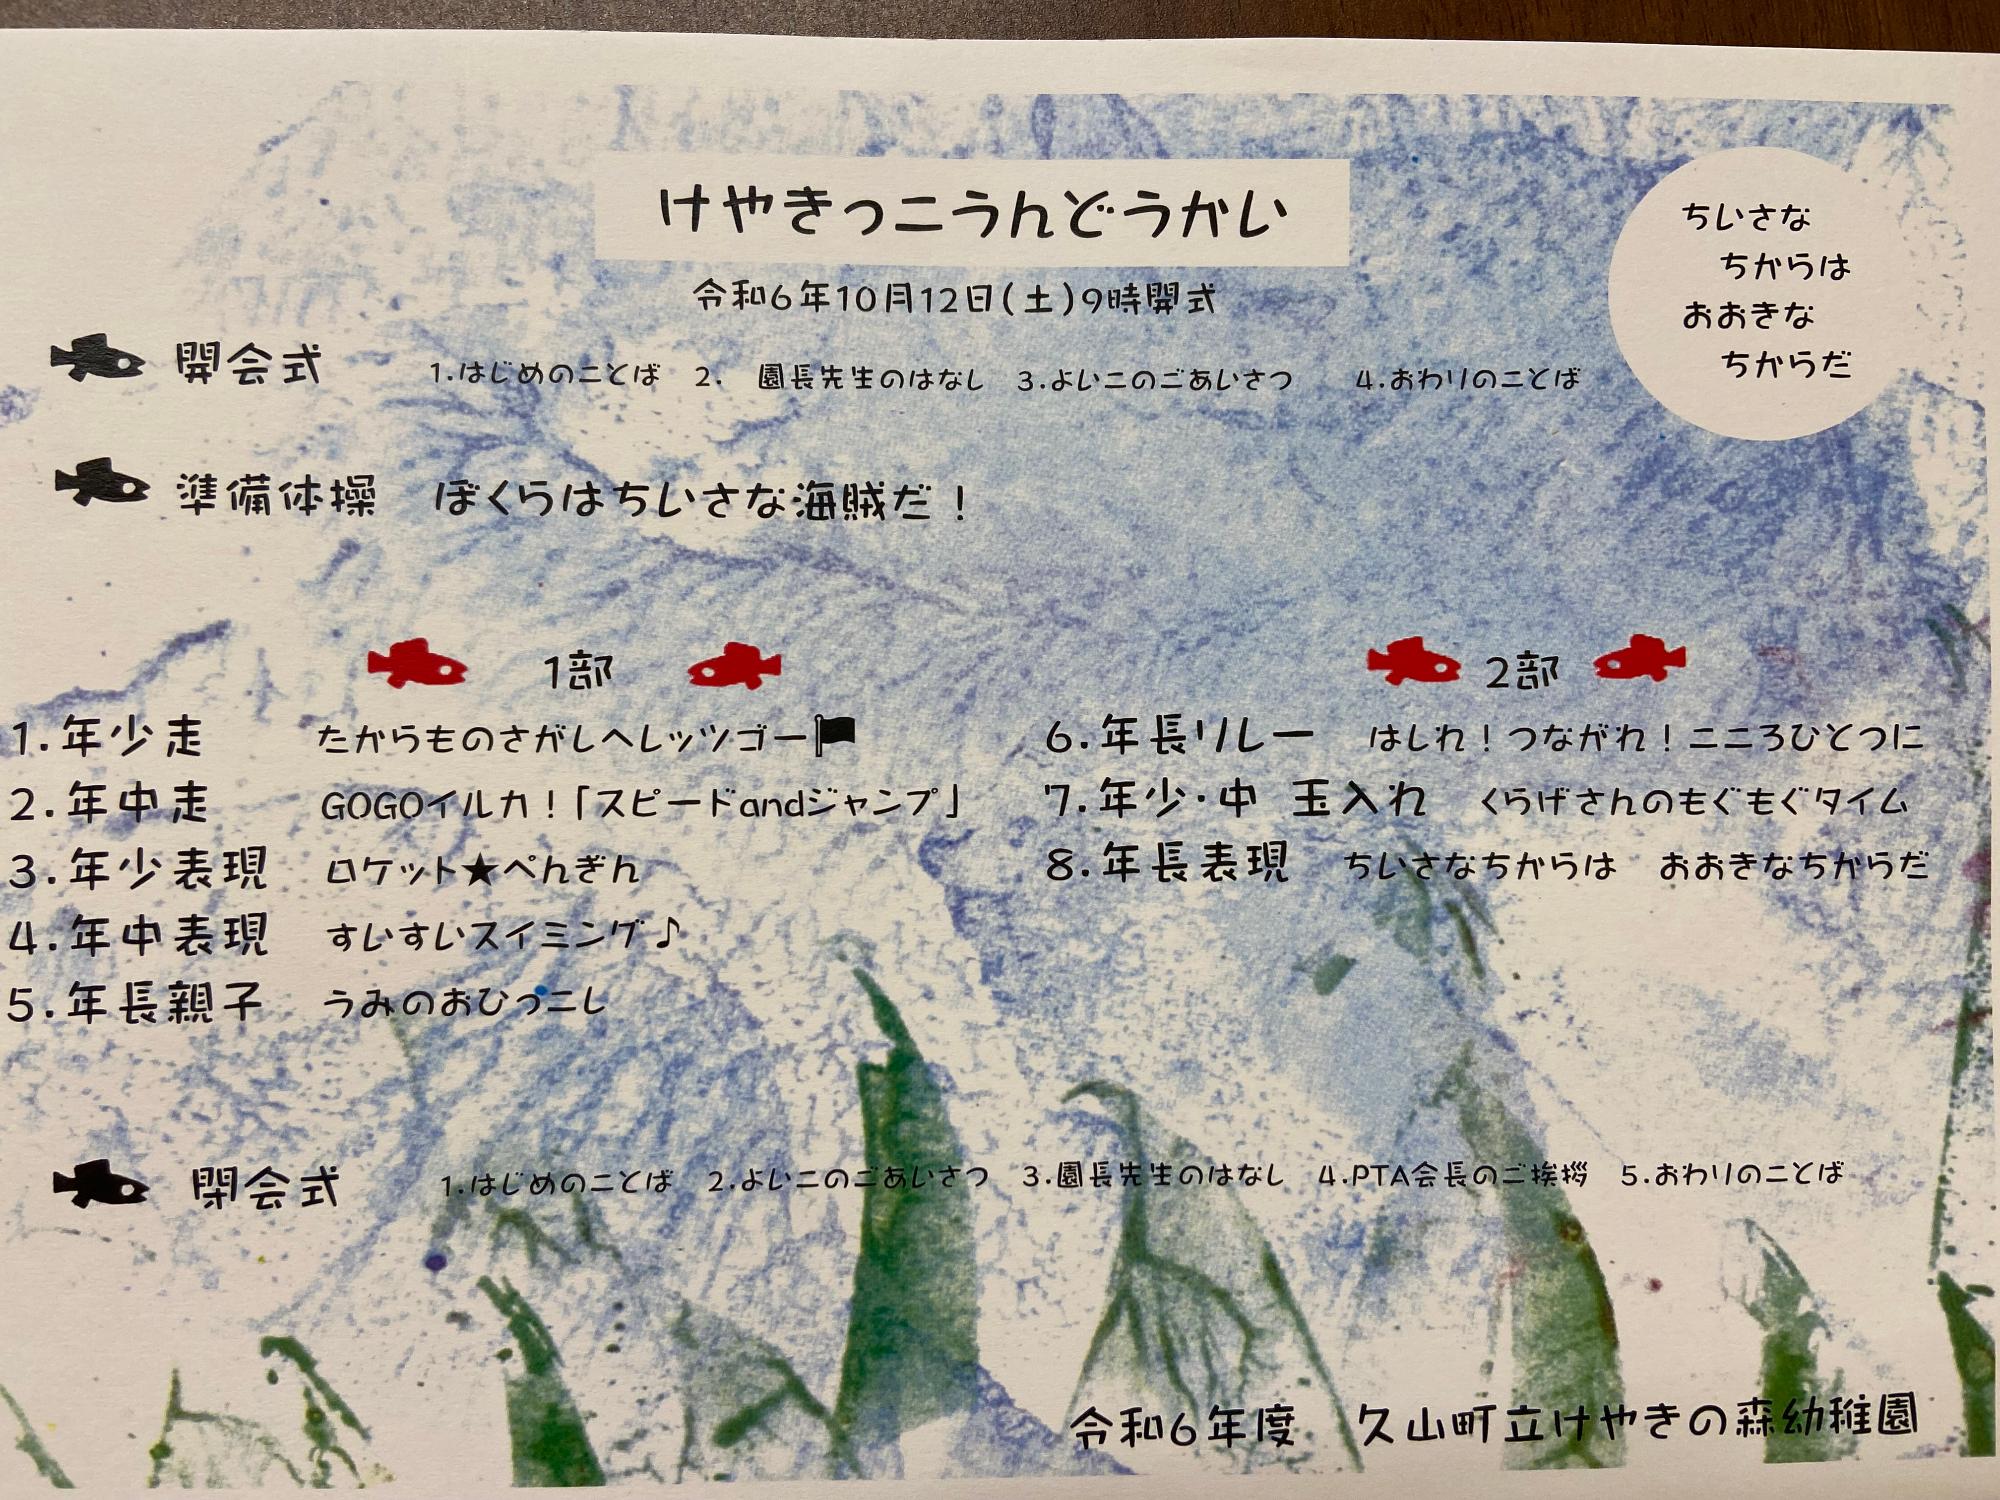 けやきっこうんどうかい
令和6年10月12日(土)9時開式
ちいさな
ちからは
おおきな
ちからだ
開会式 1.はじめのことば 2. 園長先生のはなし 3.よいこのごあいさつ 4.おわりのことば
準備体操 ぼくらはちいさな海賊だ！
1部
1.年少走 たからものさがしへレッツゴー
2.年中走 GOGOイルカ！「スピードandジャンプ」
3.年少表現 ロケット★ぺんぎん
4.年中表現 すいすいスイミング♪
5.年長親子 うみのおひっこし
2部
6.年長リレー はしれ！つながれ！こころひとつに
7.年少・中 玉入れ くらげさんのもぐもぐタイム
8.年長表現 ちいさなちからは おおきなちからだ
閉会式 1.はじめのことば 2.よいこのごあいさつ 3.園長先生のはなし 4.PTA会長のご挨拶 5.おわりのことば
令和6年度 久山町立けやきの森幼稚園